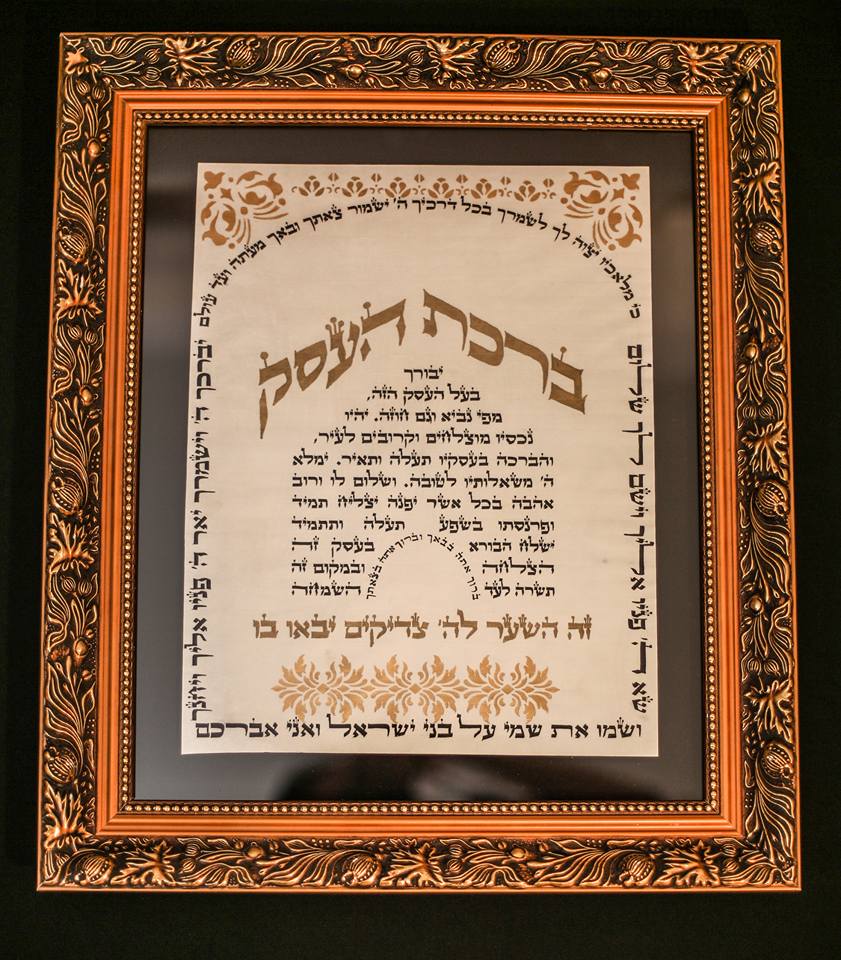 כי מלאכיו יצוה לך לשמרך בכל דרכיך ה' ישמור צאתך ובאך מעתה ועד עולם
ברכת העסק
יבורך
בעל העסק הזה,
מפי נביא וגם חוזה. יהיו
נכסיו מוצלחים וקרובים לעיר,
והברכה בעסקיו תעלה ותאיר. ימלא
ה' משאלותיו לטובה. ושלום לו ורוב
אהבה בכל אשר יפנה יצליח תמיד
ופרנסתו בשפע תעלה ותתמיד
ישלח הבורא בעסק זה
הצלחה ובמקום זה
תשרה לעד השמחה
ברוך אתה בבאך וברוך אתה בצאתך
זה השער לה' צדיקים יבאו בו
יברכך ה' וישמרך יאר ה' פניו אליך ויחנך
ישא ה' פניו אליך וישם לך שלום
ושמו את שמי על בני ישראל ואני אברכם